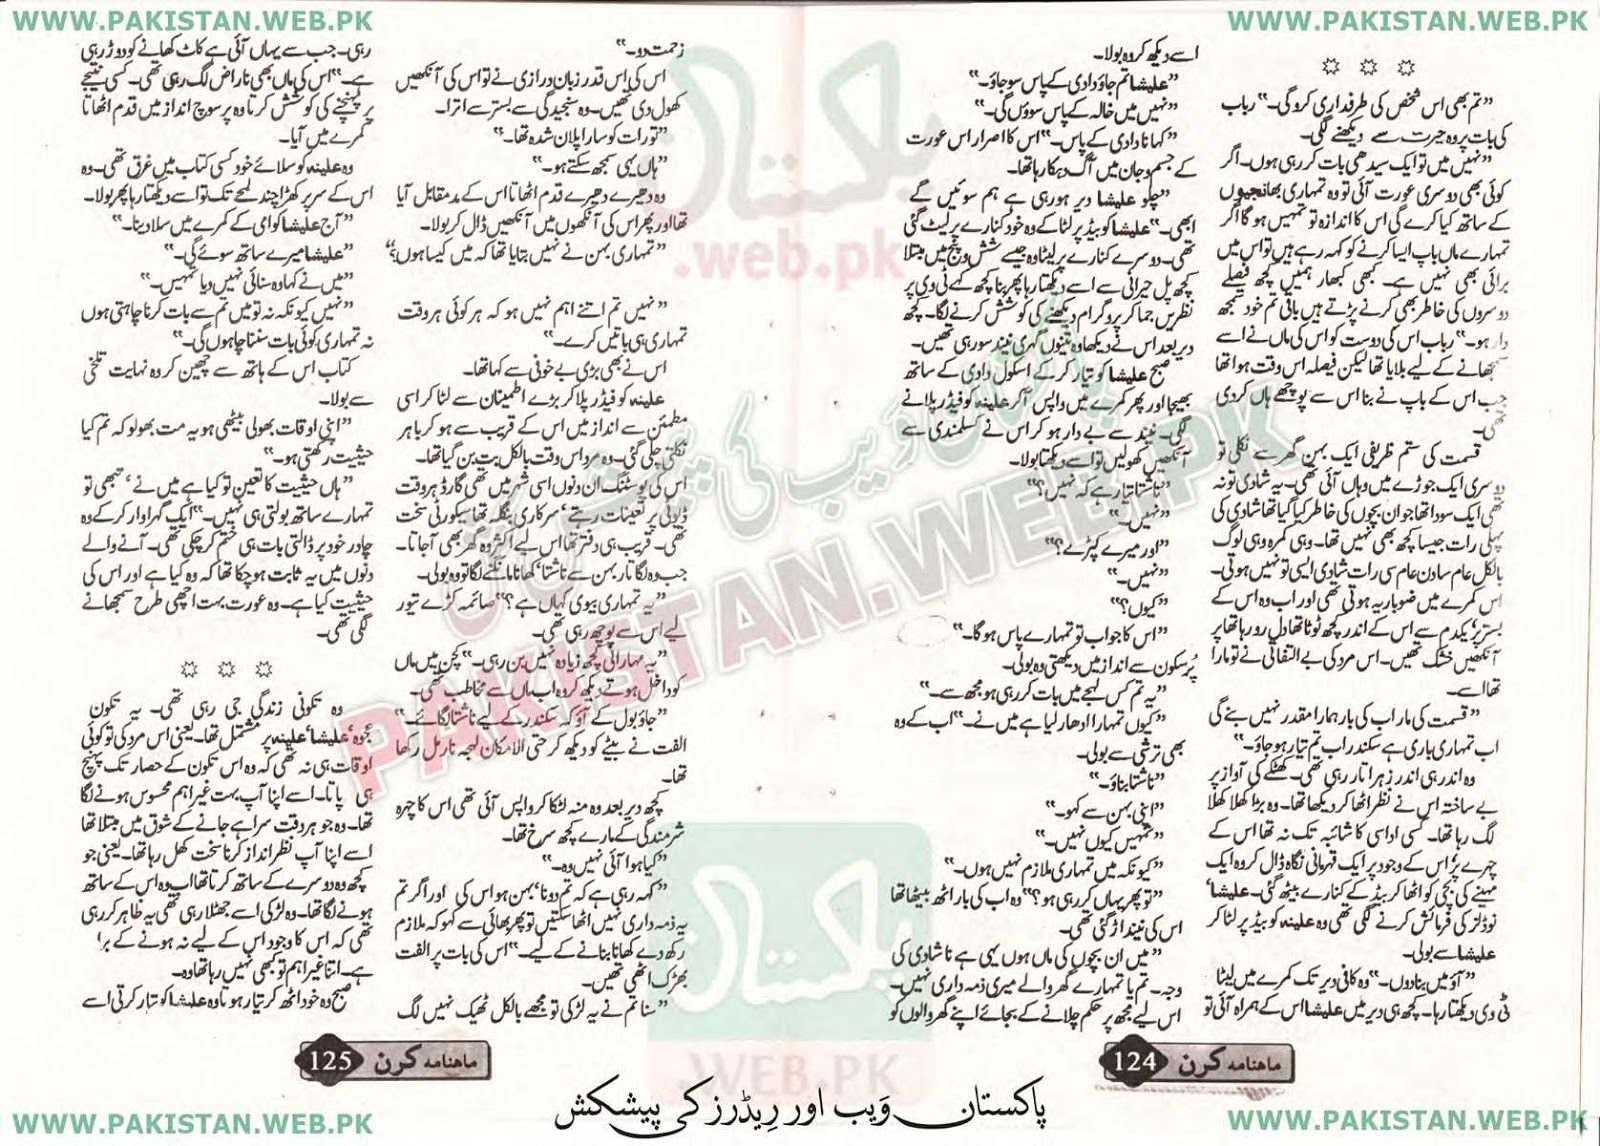 WWW.PAKISTAN.WEB.PK
WWW.PAKISTAN.WEB.PK
”تم بھی اس شخص کی طرفداری کروگی۔“ رباب
کی بات پر وہ حیرت سے دیکھنے لگی۔
”نہیں میں تو ایک سیدھی بات کر رہی ہوں۔ اگر
کوئی بھی دوسری عورت آئی تو وہ تمہاری بھانجیوں
کے ساتھ کیا کرے گی اس کا اندازہ تو تمہیں ہوگا اگر
تمہارے ماں باپ ایسا کرنے کو کہہ رہے ہیں تو اس میں
برائی بھی نہیں ہے۔ کبھی کبھار ہمیں کچھ فیصلے
دوسروں کی خاطر بھی کرنے پڑتے ہیں باقی تم خود سمجھ
دار ہو۔“ رباب اس کی دوست کو اس کی ماں نے اسے
سمجھانے کے لیے بلایا تھا لیکن فیصلہ اس وقت ہوا تھا
جب اس کے باپ نے بنا اس سے پوچھے ہاں کر دی
تھی۔
قسمت کی ستم ظریفی ایک بہن گھر سے نکلی تو
دوسری ایک جوڑے میں وہاں آئی تھی۔ یہ شادی تو نہ
تھی ایک سودا تھا جو ان بچوں کی خاطر کیا گیا تھا شادی کی
پہلی رات جیسا کچھ بھی نہیں تھا۔ وہی کمرہ وہی لوگ
بالکل عام سا دن عام سی رات شادی ایسی تو نہیں ہوتی۔
اس کمرے میں ضوباریہ ہوتی تھی اور اب وہ اس کے
بستر پر‘ یکدم سے اس کے اندر کچھ ٹوٹا تھا دل رو رہا تھا پر
آنکھیں خشک تھیں۔ اس مرد کی بے التفاتی نے تو مارا
تھا اسے۔
”قسمت کی مار اب کی بار ہمارا مقدر نہیں بنے گی
اب تمہاری باری ہے سکندر اب تم تیار ہو جاؤ۔“
وہ اندر ہی اندر زہر اتار رہی تھی۔ کھٹکے کی آواز پر
بے ساختہ اس نے نظر اٹھا کر دیکھا تھا۔ وہ بڑا کھلا کھلا
لگ رہا تھا۔ کسی اداسی کا شائبہ تک نہ تھا اس کے
چہرے پر‘ اس کے وجود پر ایک قہرمانی نگاہ ڈال کر وہ ایک
مہینے کی بچی کو اٹھا کر بیڈ کے کنارے بیٹھ گئی۔ علیشا‘
نوڈلز کی فرمائش کرنے لگی تھی وہ علینہ کو بیڈ پر لٹا کر
علیشا سے بولی۔
”آؤ میں بنا دوں۔“ وہ کافی دیر تک کمرے میں لیٹا
ٹی وی دیکھتا رہا۔ کچھ ہی دیر میں علیشا اس کے ہمراہ آئی تو
اسے دیکھ کر وہ بولا۔
”علیشا تم جاؤ دادی کے پاس سو جاؤ۔“
”نہیں میں خالہ کے پاس سوؤں گی۔“
”کہا نا دادی کے پاس۔“ اس کا اصرار اس عورت
کے جسم و جان میں آگ دہکا رہا تھا۔
”چلو علیشا دیر ہو رہی ہے ہم سوئیں گے
ابھی۔“ علیشا کو بیڈ پر لٹا کے وہ خود کنارے پر لیٹ گئی
تھی۔ دوسرے کنارے پر لیٹا وہ جیسے شش و پنج میں مبتلا
کچھ پل حیرانی سے اسے دیکھتا رہا پھر بنا کچھ کہے ٹی وی پر
نظریں جما کر پروگرام دیکھنے کی کوشش کرنے لگا۔ کچھ
دیر بعد اس نے دیکھا وہ تینوں گہری نیند سو رہی تھیں۔
صبح علیشا کو تیار کر کے اسکول دادی کے ساتھ
بھیجا اور پھر کمرے میں واپس آکر علینہ کو فیڈر پلانے
لگی۔ نیند سے بے دار ہو کر اس نے کسلمندی سے
آنکھیں کھولیں تو اسے دیکھتا بولا۔
”ناشتا تیار ہے کہ نہیں؟“
”نہیں۔“
”اور میرے کپڑے؟“
”نہیں۔“
”کیوں؟“
”اس کا جواب تو تمہارے پاس ہوگا۔“
پُرسکون سے انداز میں دیکھتی وہ بولی۔
”یہ تم کس لہجے میں بات کر رہی ہو مجھ سے۔“
”کیوں تمہارا ادھار لیا ہے میں نے۔“ اب کے وہ
بھی ترشی سے بولی۔
”ناشتا بناؤ۔“
”اپنی بہن سے کہو۔“
”تمہیں کیوں نہیں۔“
”کیونکہ میں تمہاری ملازم نہیں ہوں۔“
”تو پھر یہاں کیا کر رہی ہو؟“ وہ اب کی بار اٹھ بیٹھا تھا
اس کی نیند اڑ گئی تھی۔
”میں ان بچوں کی ماں ہوں یہی ہے نا شادی کی
وجہ۔ تم یا تمہارے گھر والے میری ذمہ داری نہیں۔
اس لیے مجھ پر حکم چلانے کے بجائے اپنے گھر والوں کو
ماہنامہ کرن 124
زحمت دو۔“
اس کی اس قدر زبان درازی نے تو اس کی آنکھیں
کھول دی تھیں۔ وہ سنجیدگی سے بستر سے اترا۔
”تو رات کو سارا پلان شدہ تھا۔“
”ہاں یہی سمجھ سکتے ہو۔“
وہ دھیرے دھیرے قدم اٹھاتا اس کے مدمقابل آیا
تھا اور پھر اس کی آنکھوں میں آنکھیں ڈال کر بولا۔
”تمہاری بہن نے نہیں بتایا تھا کہ میں کیسا ہوں؟“
”نہیں تم اتنے اہم نہیں ہو کہ ہر کوئی ہر وقت
تمہاری ہی باتیں کرے۔“
اس نے بھی بڑی بے خوفی سے کہا تھا۔
علینہ کو فیڈر پلا کر بڑے اطمینان سے لٹا کر اسی
مطمئن سے انداز میں اس کے قریب سے ہو کر باہر
نکلتی چلی گئی۔ وہ مرد اس وقت بالکل بت بن گیا تھا۔
اس کی پوسٹنگ ان دنوں اسی شہر میں تھی گارڈ ہر وقت
ڈیوٹی پر تعینات رہتے‘ سرکاری بنگلہ تھا سیکورٹی سخت
تھی۔ قریب ہی دفتر تھا اس لیے اکثر وہ گھر بھی آجاتا۔
جب وہ لگاتار بہن سے ناشتا‘ کھانا مانگنے لگا تو وہ بولی۔
”یہ تمہاری بیوی کہاں ہے؟“ صائمہ کڑے تیور
لیے اس سے پوچھ رہی تھی۔
”یہ مہارانی کچھ زیادہ نہیں بن رہی۔“ کچن میں ماں
کو داخل ہوتے دیکھ کر وہ اب ماں سے مخاطب تھی۔
”جاؤ بول کے آؤ کہ سکندر کے لیے ناشتا لگائے۔“
الفت نے بیٹے کو دیکھ کر حتی الامکان لہجہ نارمل رکھا
تھا۔
کچھ دیر بعد وہ منہ لٹکا کر واپس آئی تھی اس کا چہرہ
شرمندگی کے مارے کچھ سرخ تھا۔
”کیا ہوا آئی نہیں وہ۔“
”کہہ رہی ہے کہ تم دونا‘ بہن ہو اس کی اور اگر تم
یہ ذمہ داری نہیں اٹھا سکتیں تو پھر بھائی سے کہو کہ ملازم
رکھ دے کھانا بنانے کے لیے۔“ اس کی بات پر الفت
بھڑک اٹھی تھیں۔
”سنا تم نے یہ لڑکی تو مجھے بالکل ٹھیک نہیں لگ
رہی۔ جب سے یہاں آئی ہے کاٹ کھانے کو دوڑ رہی
ہے۔“ اس کی ماں بھی ناراض لگ رہی تھی۔ کسی نتیجے
پر پہنچنے کی کوشش کرتا وہ پرسوچ انداز میں قدم اٹھاتا
کمرے میں آیا۔
وہ علینہ کو سلائے خود کسی کتاب میں غرق تھی۔ وہ
اس کے سر پر کھڑا چند لمحے تک تو اسے دیکھتا رہا پھر بولا۔
”آج علیشا کو امی کے کمرے میں سلا دینا۔“
”علیشا میرے ساتھ سوئے گی۔“
”میں نے کہا وہ سنائی نہیں دیا تمہیں۔“
”نہیں کیونکہ نہ تو میں تم سے بات کرنا چاہتی ہوں
نہ تمہاری کوئی بات سننا چاہوں گی۔“
کتاب اس کے ہاتھ سے چھین کر وہ نہایت تلخی
سے بولا۔
”اپنی اوقات بھولی بیٹھی ہو یہ مت بھولو کہ تم کیا
حیثیت رکھتی ہو۔“
”ہاں حیثیت کا تعین تو کیا ہے میں نے‘ تبھی تو
تمہارے ساتھ بولتی ہی نہیں۔“ ایک گہرا وار کر کے وہ
چادر خود پر ڈالتی بات ہی ختم کر چکی تھی۔ آنے والے
دنوں میں یہ ثابت ہو چکا تھا کہ وہ کیا ہے اور اس کی
حیثیت کیا ہے۔ وہ عورت بہت اچھی طرح سمجھانے
لگی تھی۔
وہ تکونی زندگی جی رہی تھی۔ یہ تکون
وہ‘ علیشا‘ علینہ پر مشتمل تھا۔ یعنی اس مرد کی تو کوئی
اوقات ہی نہ تھی کہ وہ اس تکون کے حصار تک پہنچ
ہی پاتا۔ اسے اپنا آپ بہت غیر اہم محسوس ہونے لگا
تھا۔ وہ جو ہر وقت سراہے جانے کے شوق میں مبتلا تھا
اسے اپنا آپ نظر انداز کرنا سخت کھل رہا تھا۔ یعنی جو
کچھ وہ دوسرے کے ساتھ کرتا تھا اب وہ اس کے ساتھ
ہونے لگا تھا۔ وہ لڑکی اسے جھٹلا رہی تھی یہ ظاہر کر رہی
تھی کہ اس کا وجود اس کے لیے نہ ہونے کے برابر
ہے۔ اتنا غیر اہم تو کبھی نہیں رہا تھا وہ۔
صبح وہ خود اٹھ کر تیار ہوتا وہ علیشا کو تیار کرتی اسے
ماہنامہ کرن 125
پاکستان ویب کی پیشکش
PAKISTAN.WEB.PK
پاکستان
.web.pk
پاکستان
.WEB.PK
پاکستان ویب اور ریڈرز کی پیشکش
WWW.PAKISTAN.WEB.PK
WWW.PAKISTAN.WEB.PK